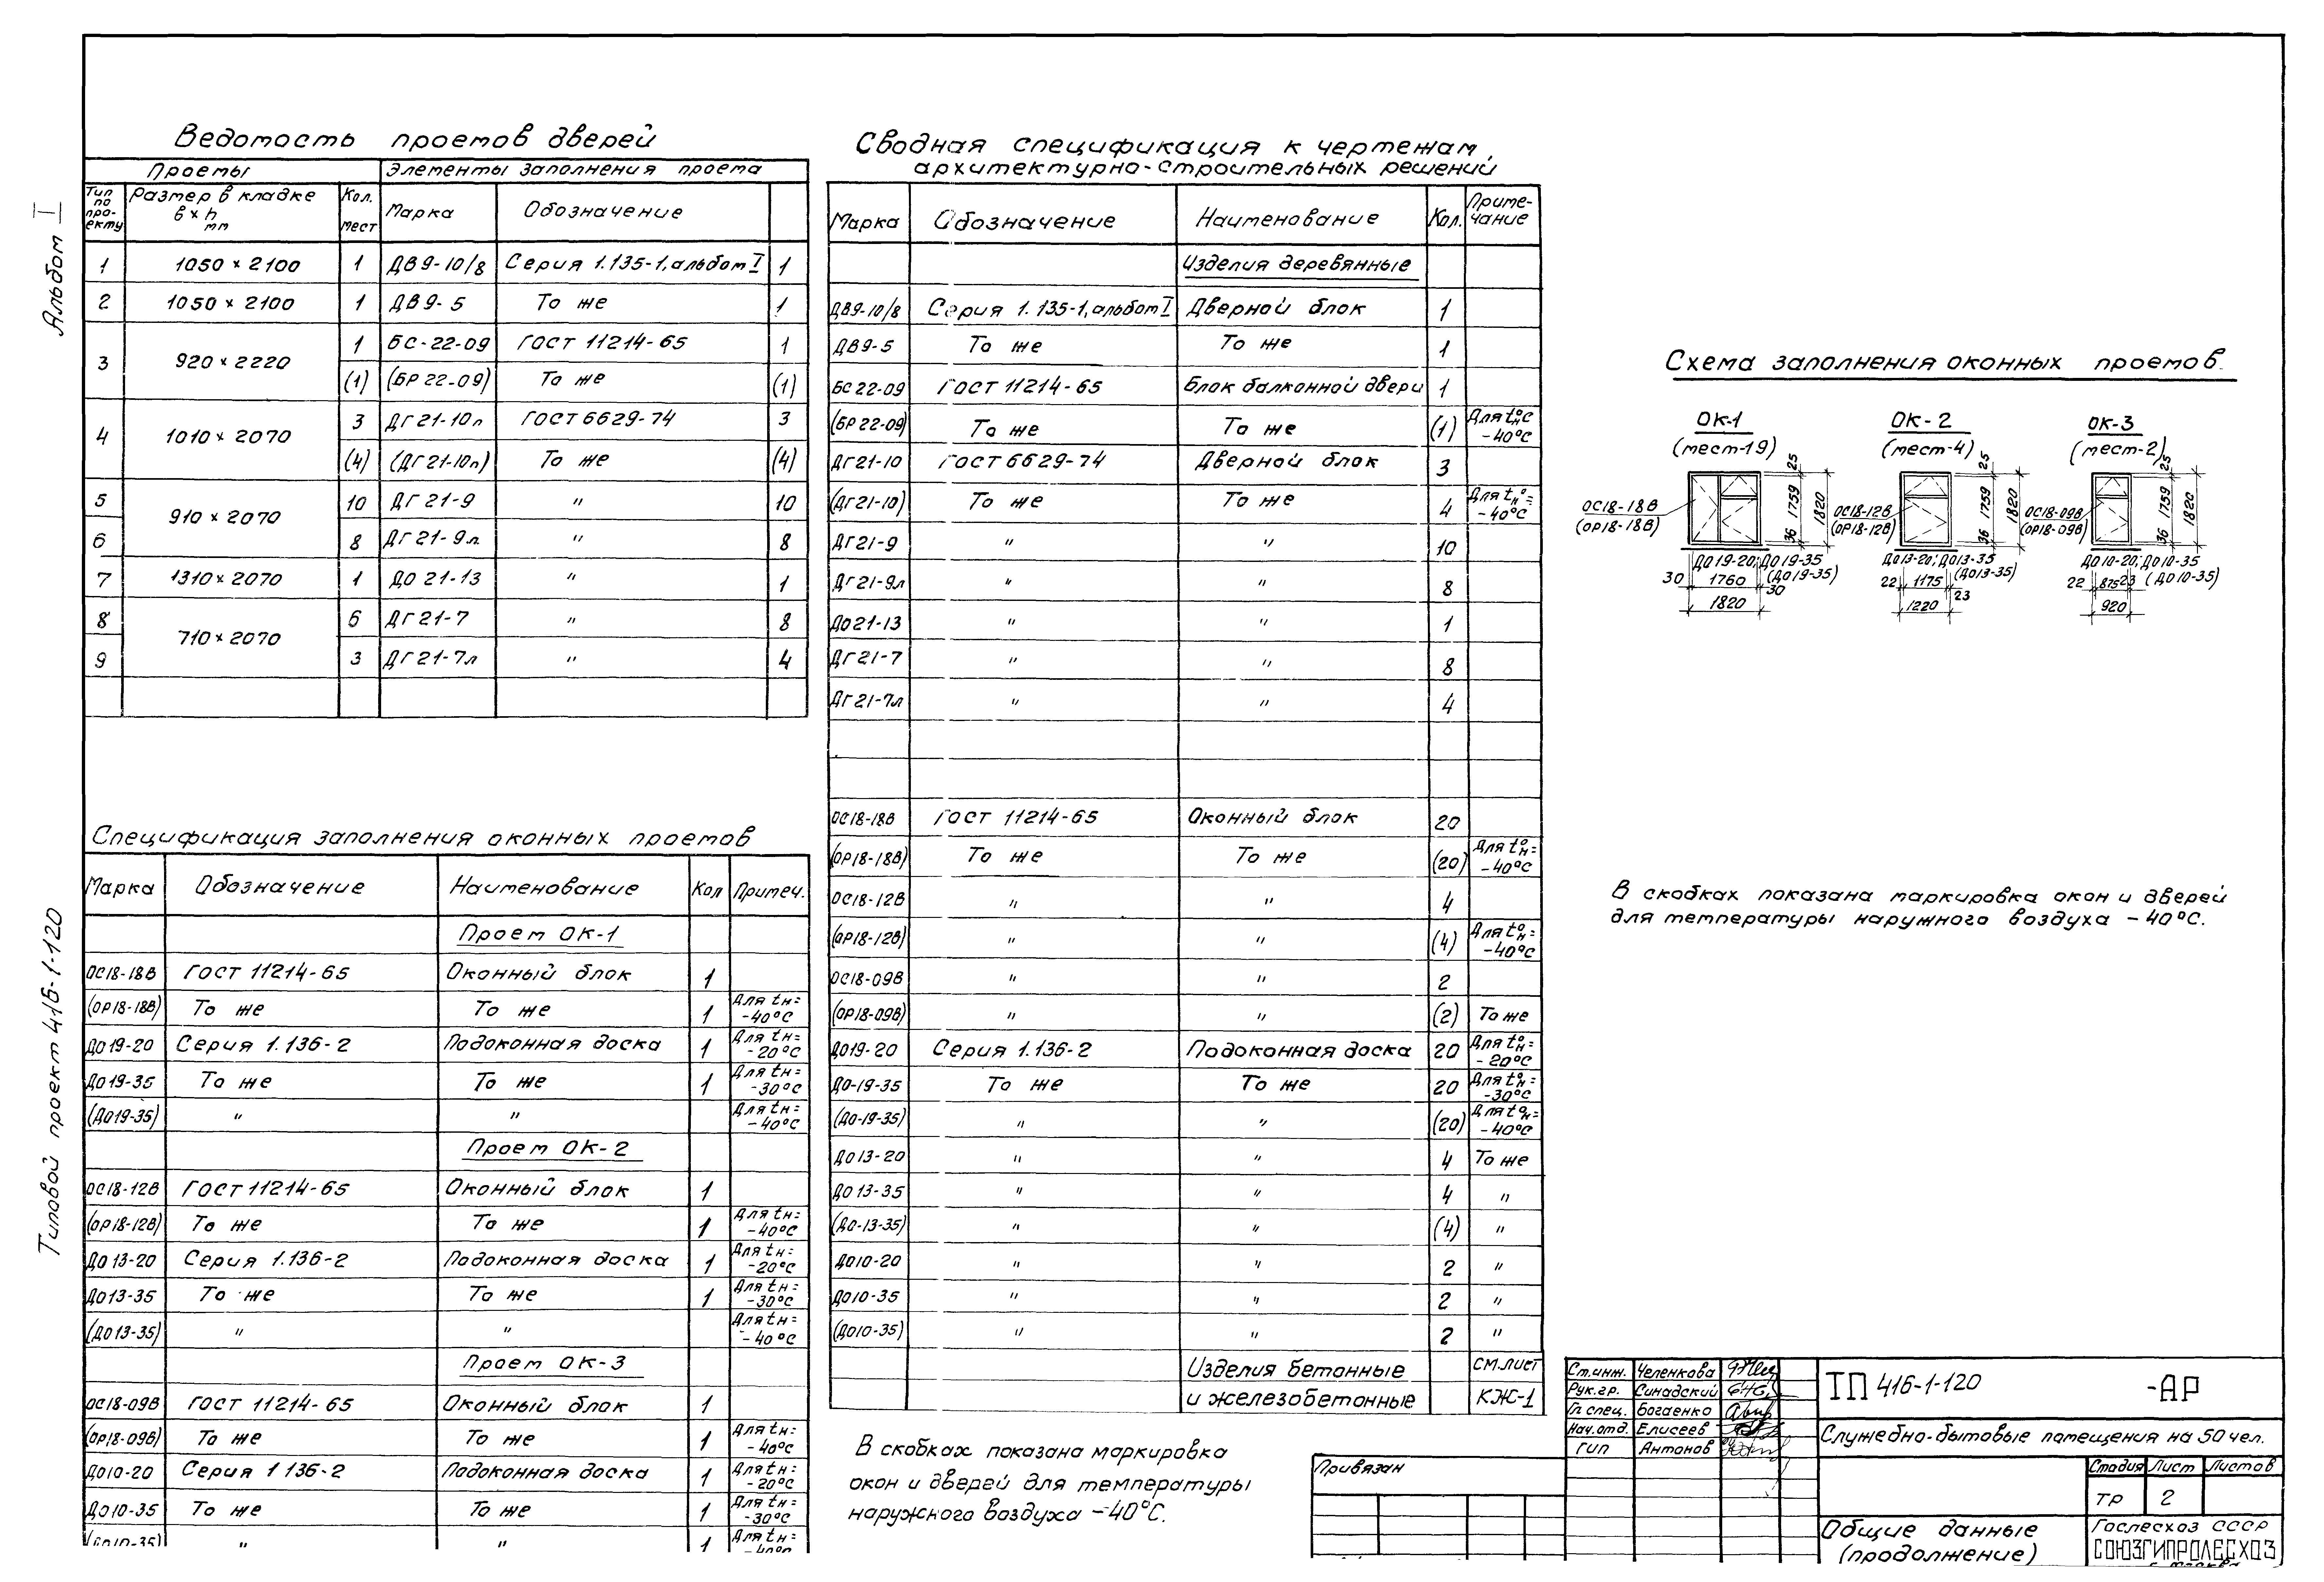 Альбом I
Типовой проект 416-1-120
Ведомость проемов дверей
Проемы | Элементы заполнения проема
Тип по про-екту | Размер в кладке в х h мм | Кол. мест | Марка | Обозначение
1 | 1050 × 2100 | 1 | ДВ9-10/8 | Серия 1.135-1, альбом I | 1
2 | 1050 × 2100 | 1 | ДВ9-5 | То же | 1
3 | 920 × 2220 | 1 | БС-22-09 | ГОСТ 11214-65 | 1
(1) | (БР 22-09) | То же | (1)
4 | 1010 × 2070 | 3 | ДГ21-10л | ГОСТ 6629-74 | 3
(4) | (ДГ21-10п) | То же | (4)
5 | 910 × 2070 | 10 | ДГ 21-9 | " | 10
6 | 8 | ДГ 21-9л | " | 8
7 | 1310 × 2070 | 1 | ДО 21-13 | " | 1
8 | 710 × 2070 | 6 | ДГ21-7 | " | 8
9 | 3 | ДГ21-7л | " | 4
Спецификация заполнения оконных проемов
Марка | Обозначение | Наименование | Кол | Примеч.
Проем ОК-1
ОС18-18В | ГОСТ 11214-65 | Оконный блок | 1
(ОР18-18В) | То же | То же | 1 | Для tн= -40°С
ДО19-20 | Серия 1.136-2 | Подоконная доска | 1 | Для tн= -20°С
ДО19-35 | То же | То же | 1 | Для tн= -30°С
(ДО19-35) | " | " | Для tн= -40°С
Проем ОК-2
ОС18-12В | ГОСТ 11214-65 | Оконный блок | 1
(ОР18-12В) | То же | То же | 1 | Для tн= -40°С
ДО 13-20 | Серия 1.136-2 | Подоконная доска | 1 | Для tн= -20°С
ДО13-35 | То же | То же | 1 | Для tн= -30°С
(ДО13-35) | " | " | Для tн= -40°С
Проем ОК-3
ОС18-09В | ГОСТ 11214-65 | Оконный блок | 1
(ОР18-09В) | То же | То же | 1 | Для tн= -40°С
ДО10-20 | Серия 1 136-2 | Подоконная доска | 1 | Для tн= -20°С
ДО10-35 | То же | То же | 1 | Для tн= -30°С
(ДО10-35) | " | " | 1 | Для tн= -40°С
Сводная спецификация к чертежам
архитектурно-строительных решений
Марка | Обозначение | Наименование | Кол. | Приме-чание
Изделия деревянные
ДВ9-10/8 | Серия 1.135-1, альбом I | Дверной блок | 1
ДВ9-5 | То же | То же | 1
БС22-09 | ГОСТ 11214-65 | Блок балконной двери | 1
(БР22-09) | То же | То же | (1) | Для t°нС -40°С
ДГ21-10 | ГОСТ 6629-74 | Дверной блок | 3
(ДГ21-10) | То же | То же | 4 | Для t°н= -40°С
ДГ21-9 | " | " | 10
ДГ21-9л | " | " | 8
ДО21-13 | " | " | 1
ДГ21-7 | " | " | 8
ДГ21-7л | " | " | 4
ОС18-18В | ГОСТ 11214-65 | Оконный блок | 20
(ОР18-18В) | То же | То же | (20) | Для t°н= -40°С
ОС18-12В | " | " | 4
(ОР18-12В) | " | " | (4) | Для t°н= -40°С
ОС18-09В | " | " | 2
(ОР18-09В) | " | " | (2) | То же
ДО19-20 | Серия 1.136-2 | Подоконная доска | 20 | Для t°н= -20°С
ДО-19-35 | То же | То же | 20 | Для t°н= -30°С
(ДО-19-35) | " | " | (20) | Для t°н= -40°С
ДО13-20 | " | " | 4 | То же
ДО13-35 | " | " | 4 | "
(ДО-13-35) | " | " | (4) | "
ДО10-20 | " | " | 2 | "
ДО10-35 | " | " | 2 | "
(ДО10-35) | " | " | 2 | "
Изделия бетонные | см.лист
и железобетонные | КЖ-1
В скобках показана маркировка
окон и дверей для температуры
наружного воздуха -40°С.
Схема заполнения оконных проемов.
ОК-1
(мест-19)
ОС18-18В
(ОР18-18В)
25
1759
36
1820
ДО19-20; ДО19-35
(ДО19-35)
30 1760 30
1820
ОК-2
(мест-4)
ОС18-12В
(ОР18-12В)
25
1759
36
1820
ДО13-20; ДО13-35
(ДО13-35)
22 1175 23
1220
ОК-3
(мест-2)
ОС18-09В
(ОР18-09В)
25
1759
36
1820
ДО10-20; ДО10-35
(ДО10-35)
22 875 23
920
В скобках показана маркировка окон и дверей
для температуры наружного воздуха -40°С.
Привязан
Ст.инж. | Челенкова
Рук.гр. | Синадский
Гл спец. | Богаенко
Нач.отд. | Елисеев
ГИП | Антонов
ТП 416-1-120 -АР
Служебно-бытовые помещения на 50 чел.
Стадия | Лист | Листов
ТР | 2
Общие данные
(продолжение)
Гослесхоз СССР
СОЮЗГИПРОЛЕСХОЗ
г. Москва